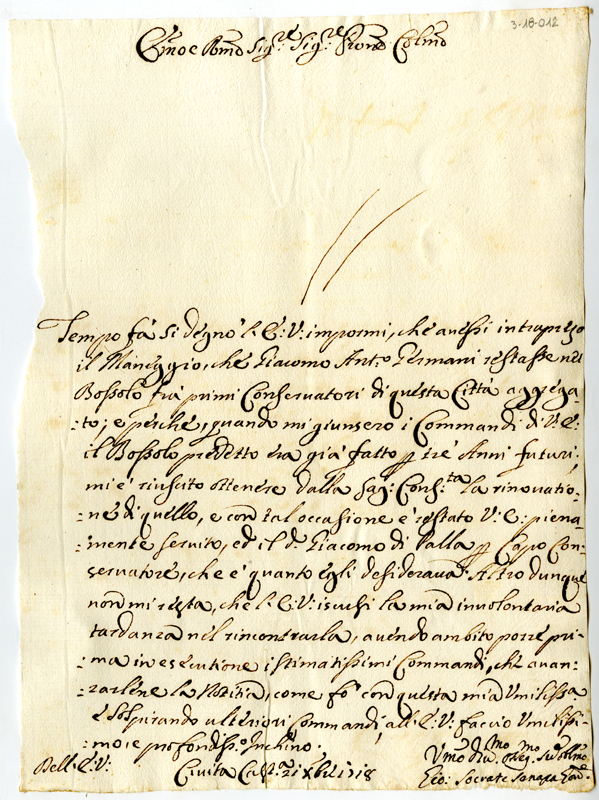 3-18-012
Emo e Rmo Sig.re Sig.re Prone Colmo
Tempo fà si degnò l'E: V: impormi, che avessi intrapreso
il Maneggio, che Giacomo Ant.o Germani restasse nel
Bossolo frà primi Conservatori di questa Città aggrega=
=to; e perche, quando mi giunsero i Commandi di V: E:
il Bossolo predetto era già fatto p tre Anni futuri,
mi è riuscito ottenere dalla Sag: Cons:ta la rinovatio=
=ne di quello, e con tal occasione è restato V: E: piena=
=mente servito, ed il d.o Giacomo di Palla p Capo Con=
servatore, che è quanto egli desiderava. Altro dunque
non mi resta, che l'E: V: iscusi la mia involontaria
tardanza nel rincontrarla, avendo ambito porre pri=
=ma in esecutione i stimatissimi Commandi, che avan=
=zarlene la Notitia, come fò con questa mia Umilissa
e sospirando ulteriori Commandi, all'E: V: faccio Umilissi=
=mo, e profondiss.o Inchino.
Dell'E: V:
Civita Cast.a 21 Xbre 1718
Umo Dmo Obligmo
Gio: Socrate